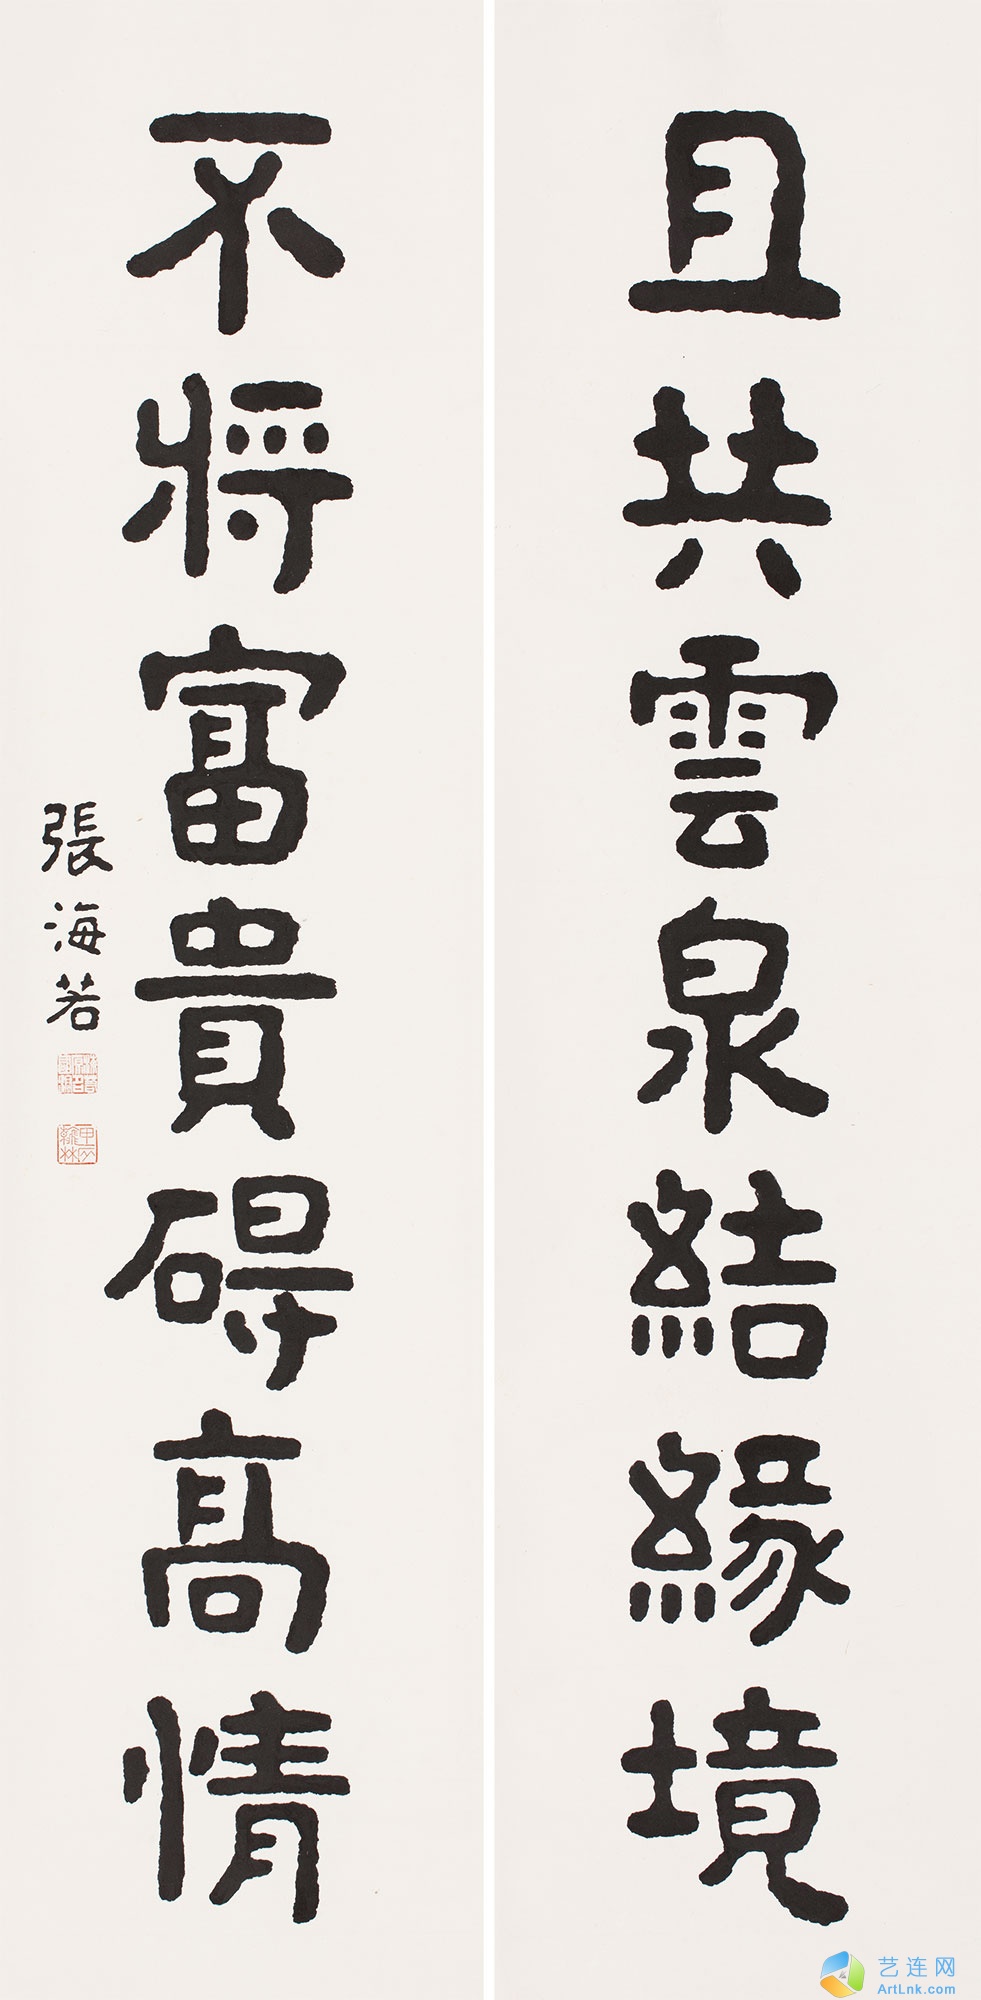 且共雲泉結緣境
不將富貴碍高情
張海若
甲辰翰林
艺连网
ArtLnk.com